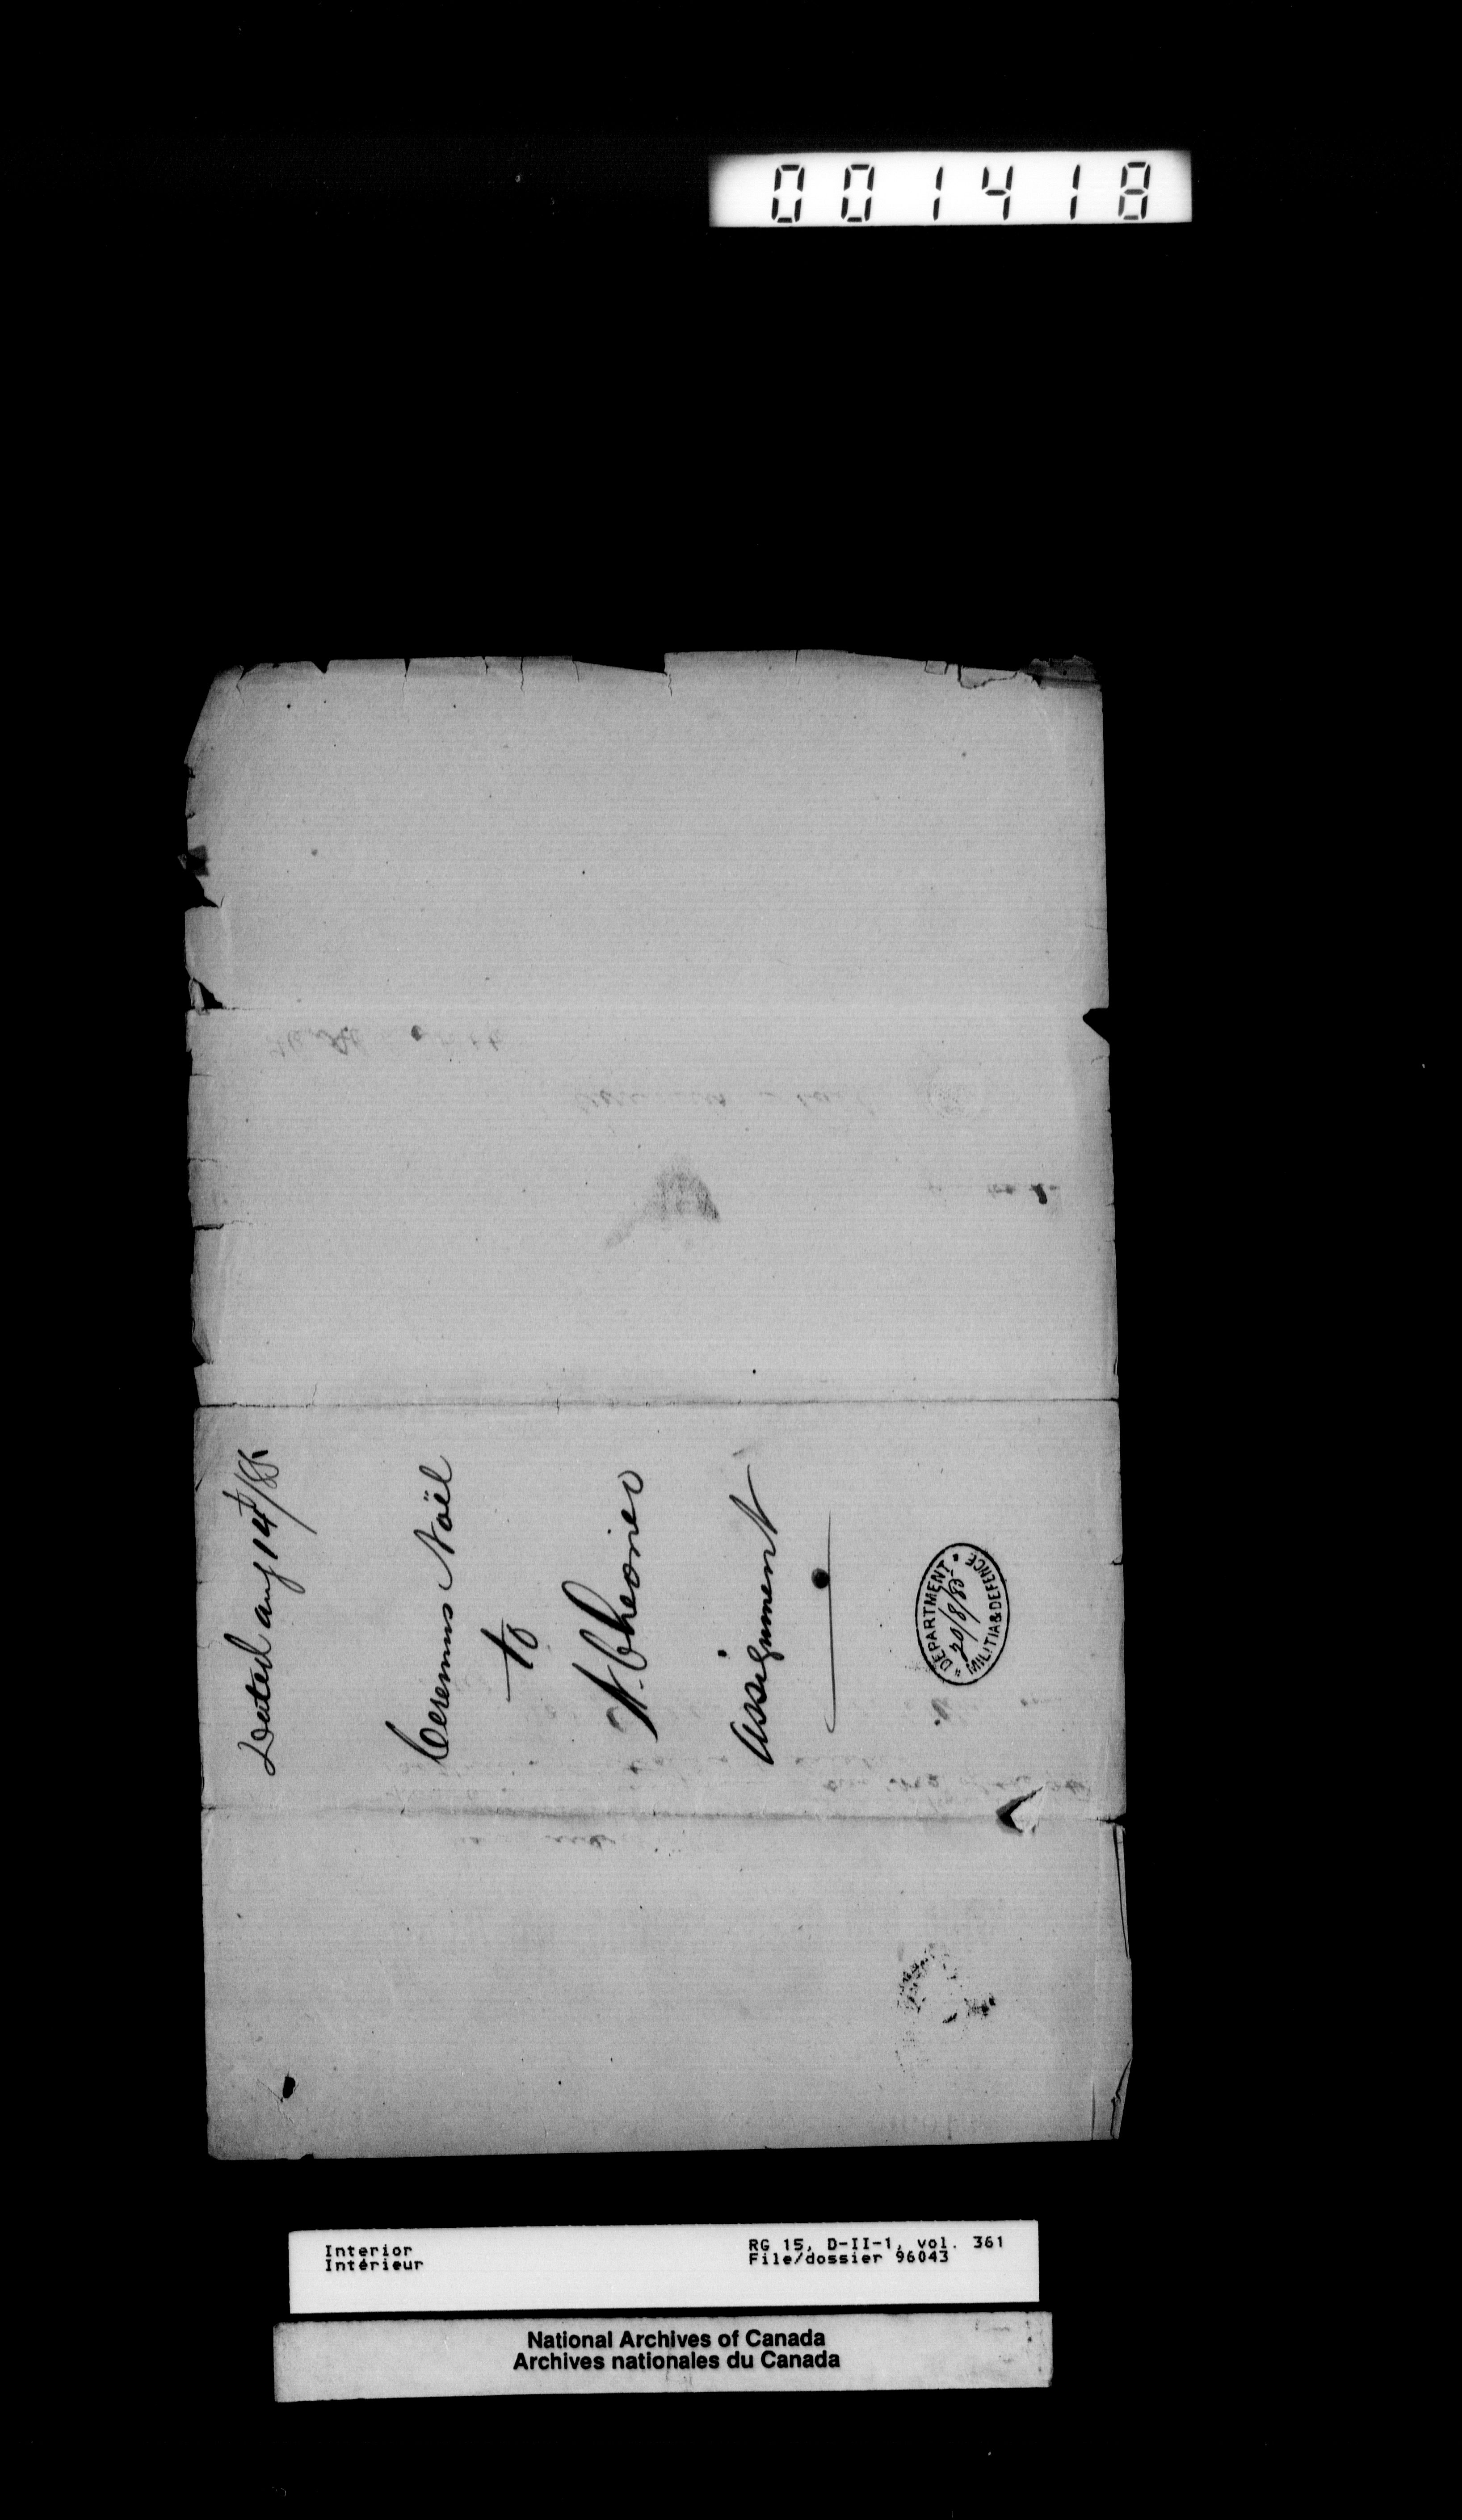 001418
Dated Aug 14th/85
Ceremus Noël
to
N. Cheoniev
Assignment
DEPARTMENT
20/8/85
MILITIA & DEFENCE
Interior
Intérieur
RG 15, D-II-1, vol. 361
File/dossier 96043
National Archives of Canada
Archives nationales du Canada